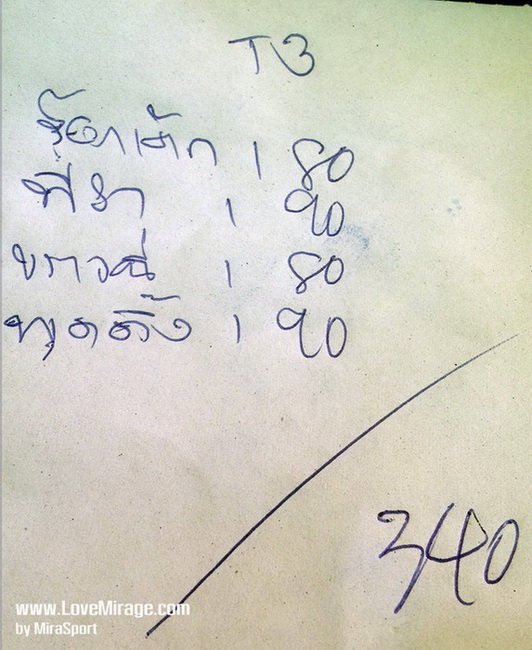 T3
ช็อกเค้ก 1 80
ทีรา 1 90
บราวนี่ 1 80
พุดดิ้ง 1 90
340
www.LoveMirage.com
by MiraSport